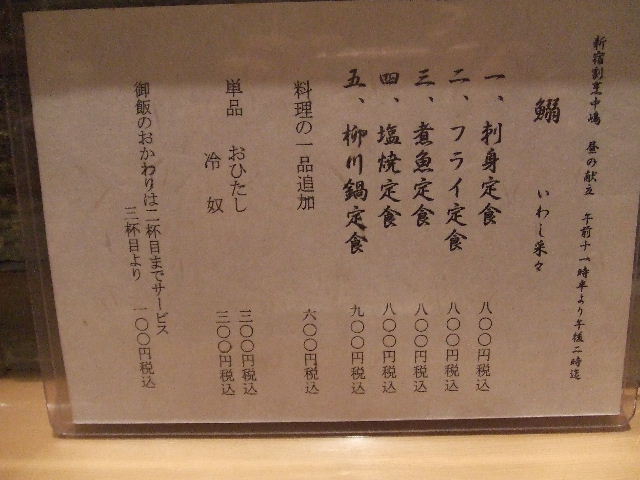 新宿割烹中嶋　昼の献立　午前十一時半より午後二時迄
鰯　いわし来々
一、刺身定食　八〇〇円税込
二、フライ定食　八〇〇円税込
三、煮魚定食　八〇〇円税込
四、塩焼定食　八〇〇円税込
五、柳川鍋定食　九〇〇円税込
料理の一品追加　六〇〇円税込
単品　おひたし　三〇〇円税込
冷奴　三〇〇円税込
御飯のおかわりは二杯目までサービス
三杯目より　一〇〇円税込